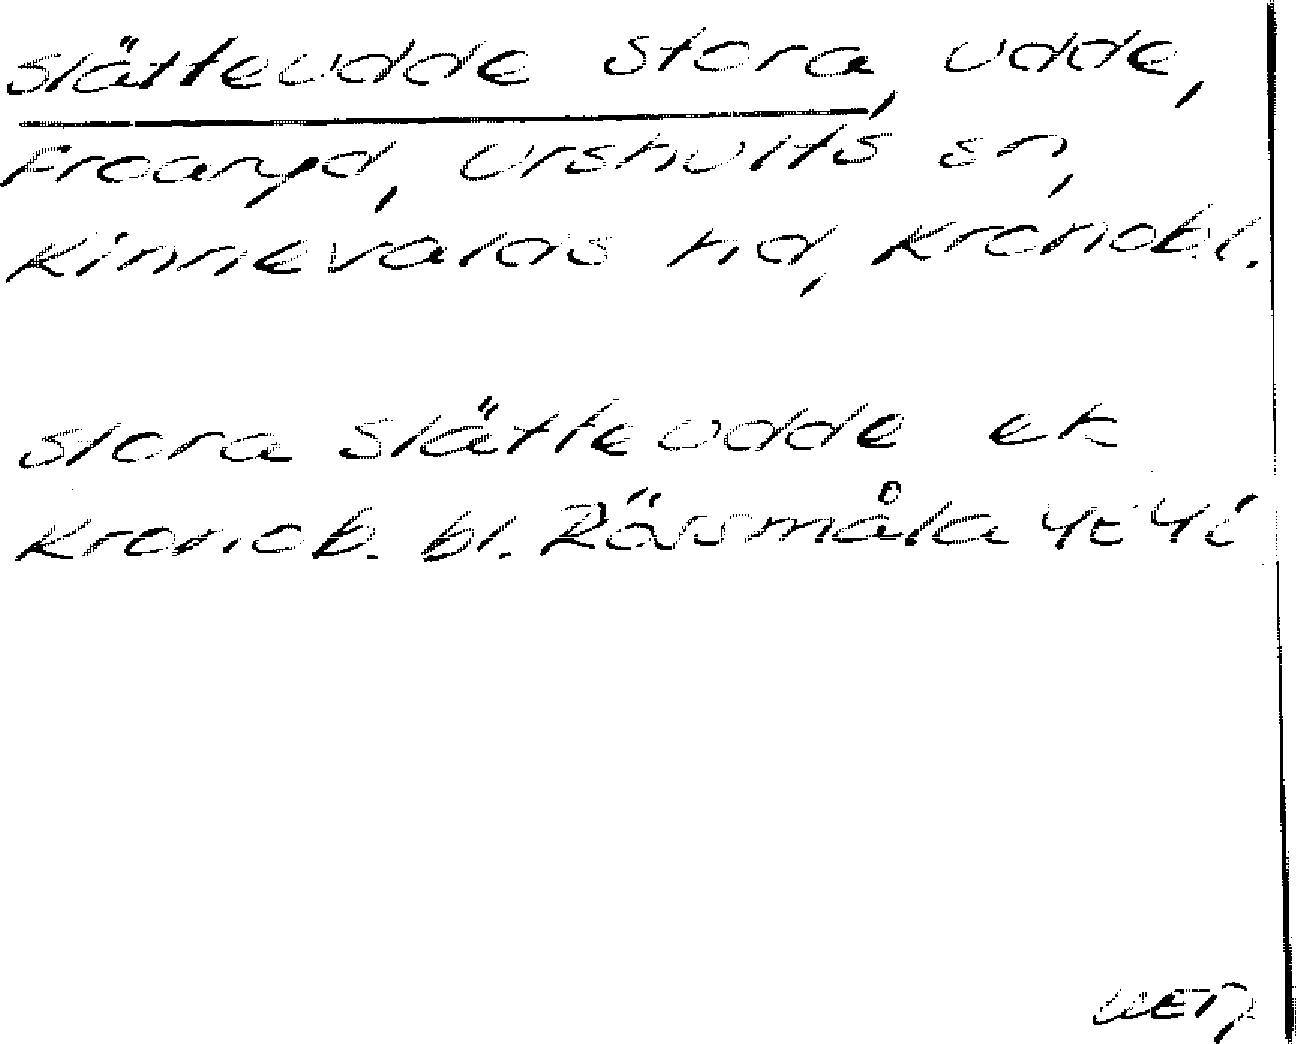 Slätteudde stora, udde,
Froaryd, Urshults sn,
Kinnevalds hd, Kronob.l.
Stora Slätteudde ek
Kronob. bl. Rössmåla 4E4i